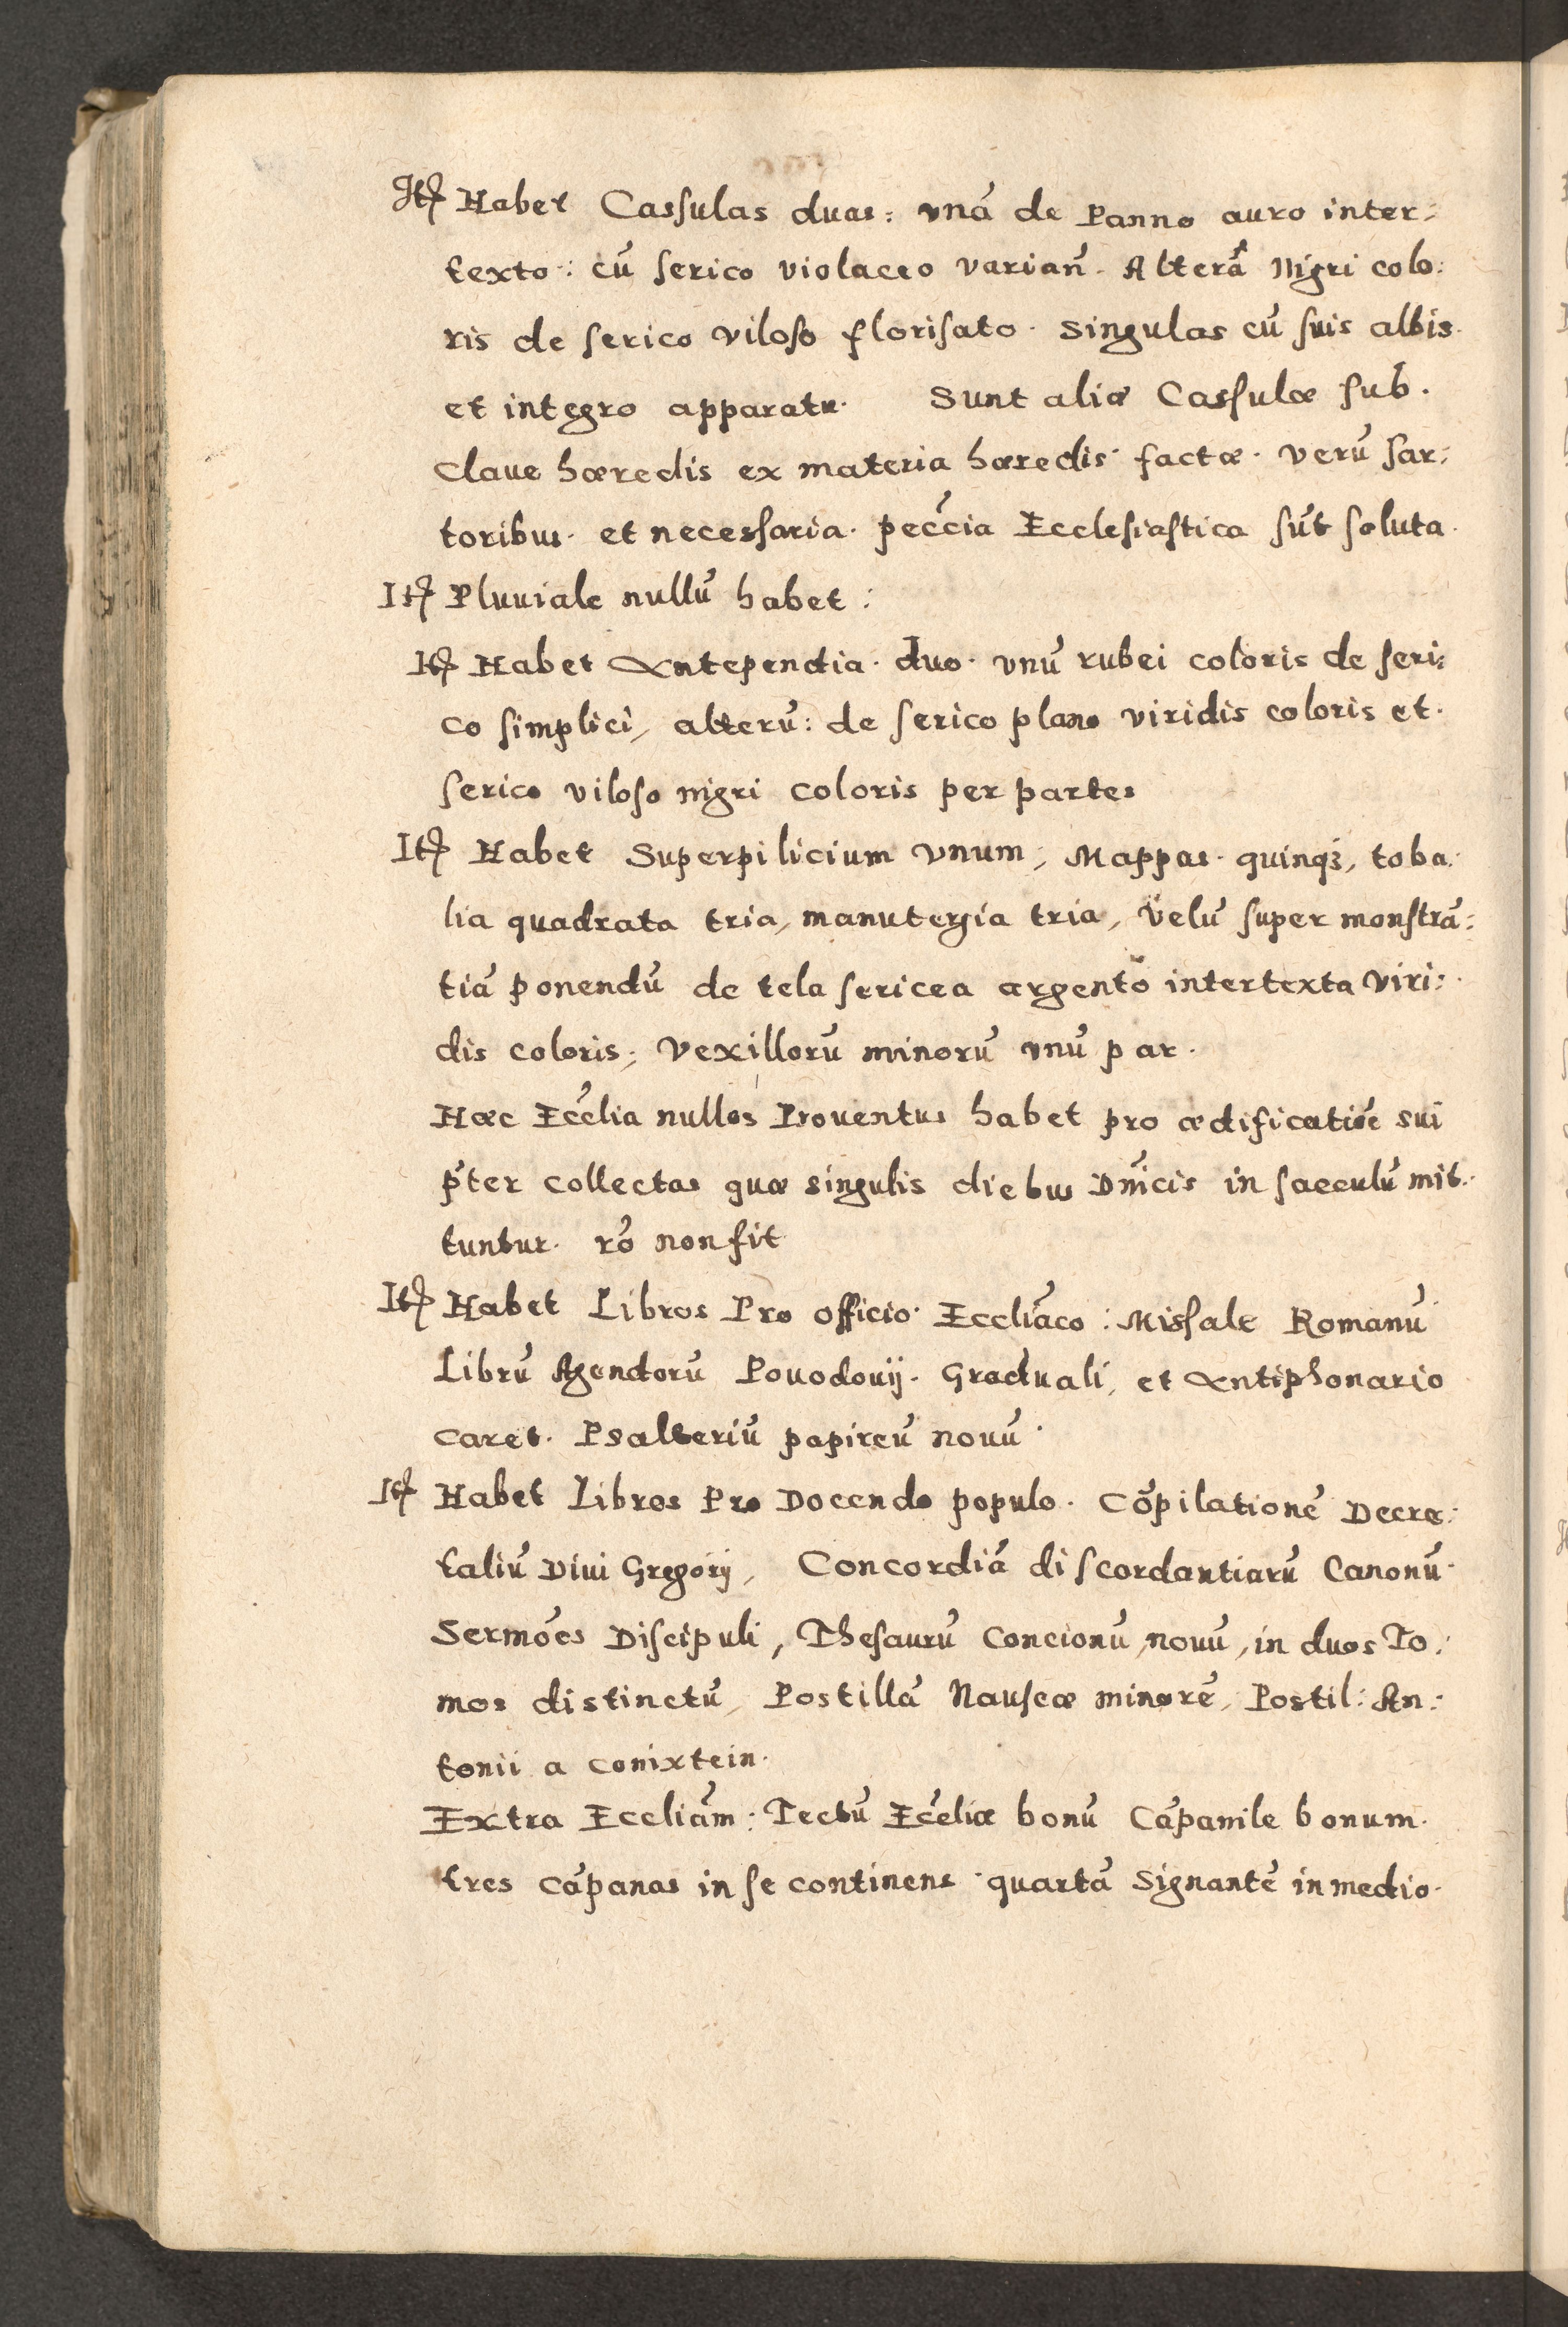 Itꝭ Habet Cassulas duas: vnā de Panno auro inter:
texto: cū serico violaceo varian̄. Alterā Nigri colo:
ris de serico viloso florisato. Singulas cū suis albis.
et integro apparatu. Sunt aliæ Cassulæ sub.
Claue hæredis ex materia hæredis factæ. verū sar:
toribus. et necessaria. peccīa Ecclesiastica sūt soluta.
Itꝭ Pluuiale nullū habet:
Itꝭ Habet Antependia. duo. vnū rubei coloris de seri:
co simplici, alterū: de serico plano viridis coloris et.
serico viloso nigri coloris per partes
Itꝭ Habet Superpilicium vnum, Mappas. quinqꝫ, toba:
lia quadrata tria, manutergia tria, Velū super monstrā:
tiā ponendū de tela sericea argento intertexta viri:
dis coloris, Vexillorū minorū vnū par.
Hæc Eccłia nullos Prouentus habet pro ædificatiōe sui
p̄ter collectas quæ singulis diebus Dnīcis in sacculū mit:
tuntur. rō non fit
Itꝭ Habet Libros Pro officio. Eccliāco: Missale Romanū
Librū Agendorū Pouodouij. Graduali, et Antiphonario
caret. Psalteriū papireū nouū.
Itꝭ Habet Libros Pro Docendo populo. Cōpilationē Decre:
taliū Diui Gregorij, Concordiā discordantiarū Canonū.
Sermōes Discipuli, Thesaurū Concionū, nouū, in duos To:
mos distinctū, Postillā Nauseæ minorē, Postil: An:
tonii a conixtein.
Extra Eccliām: Tectū Eccłiæ bonū Cāpanile bonum.
tres cāpanas in se continens quartā Signantē in medio.